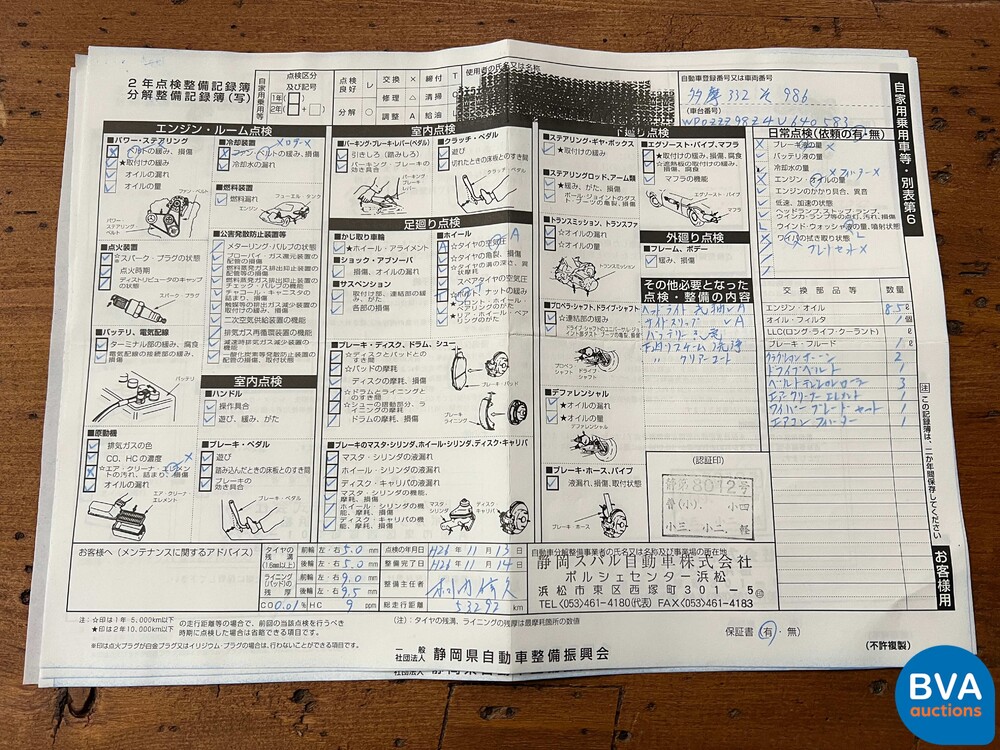 2年点検整備記録簿
分解整備記録簿(写)
自家用乗用等
点検区分及び記号
1年
2年
点検良好 レ 交換 × 締付 T
修理 △ 清掃 C
分解 ○ 調整 A 給油 L
使用者の氏名又は名称
自動車登録番号又は車両番号
多摩 332 そ 986
(車台番号)
WP0ZZZ98Z4U640583
自家用乗用車等・別表第6
エンジン・ルーム点検
■パワー・ステアリング
ベルトの緩み、損傷
★取付けの緩み
オイルの漏れ
オイルの量
ファン・ベルト
パワー・ステアリング・ベルト
■点火装置
☆スパーク・プラグの状態
点火時期
ディストリビュータのキャップの状態
スパーク・プラグ
■バッテリ、電気配線
ターミナル部の緩み、腐食
電気配線の接続部の緩み、損傷
バッテリ
■原動機
排気ガスの色
CO、HCの濃度
☆エア・クリーナ・エレメントの汚れ、詰まり、損傷
オイルの漏れ
エア・クリーナ・エレメント
■冷却装置
ファン・ベルトの緩み、損傷
冷却水の漏れ
■燃料装置
燃料漏れ
フューエル・タンク
エンジン
■公害発散防止装置等
メターリング・バルブの状態
ブローバイ・ガス還元装置の配管の損傷
燃料蒸発ガス排出抑止装置の配管等の損傷
燃料蒸発ガス排出抑止装置のチェック・バルブの機能
チャコール・キャニスタの詰まり、損傷
触媒等の排出ガス減少装置の取付けの緩み、損傷
二次空気供給装置の機能
排気ガス再循環装置の機能
減速時排気ガス減少装置の機能
一酸化炭素等発散防止装置の配管の損傷、取付状態
室内点検
■ハンドル
操作具合
遊び、緩み、がた
■ブレーキ・ペダル
遊び
踏み込んだときの床板とのすき間
ブレーキの効き具合
ブレーキ・ペダル
室内点検
■パーキング・ブレーキ・レバー(ペダル)
引きしろ(踏みしろ)
パーキング・ブレーキの効き具合
パーキング・ブレーキ・レバー
■クラッチ・ペダル
遊び
切れたときの床板とのすき間
クラッチ・ペダル
足廻り点検
■かじ取り車輪
★ホイール・アライメント
■ショック・アブソーバ
損傷、オイルの漏れ
■サスペンション
取付部、連結部の緩み、がた
各部の損傷
■ホイール
☆タイヤの空気圧 A
☆タイヤの亀裂、損傷
☆タイヤの溝の深さ、異状摩耗
スペアタイヤの空気圧
☆フロント・ホイール・ベアリングのがた
☆リヤ・ホイール・ベアリングのがた
■ブレーキ・ディスク、ドラム、シュー
☆ディスクとパッドとのすき間
☆パッドの摩耗
ディスクの摩耗、損傷
☆ドラムとライニングとのすき間
☆シューの摺動部分、ライニングの摩耗
ドラムの摩耗、損傷
ブレーキ・パッド
ブレーキ・ライニング
■ブレーキのマスタ・シリンダ、ホイール・シリンダ、ディスク・キャリパ
マスタ・シリンダの液漏れ
ホイール・シリンダの液漏れ
ディスク・キャリパの液漏れ
マスタ・シリンダの機能、摩耗、損傷
ホイール・シリンダの機能、摩耗、損傷
ディスク・キャリパの機能、摩耗、損傷
マスタ・シリンダ
ディスク・キャリパ
下廻り点検
■ステアリング・ギヤ・ボックス
★取付けの緩み
■ステアリングのロッド、アーム類
★緩み、がた、損傷
ボール・ジョイントのダスト・ブーツの亀裂、損傷
■トランスミッション、トランスファ
☆オイルの漏れ
☆オイルの量
トランスミッション
■プロペラ・シャフト、ドライブ・シャフト
☆連結部の緩み
プロペラ・シャフト
ドライブ・シャフト
■デファレンシャル
★オイルの漏れ
★オイルの量
デファレンシャル
■ブレーキ・ホース、パイプ
液漏れ、損傷、取付状態
ブレーキ・ホース
■エグゾースト・パイプ、マフラ
★取付けの緩み、損傷、腐食
☆遮熱板の取付けの緩み、損傷、腐食
マフラの機能
エグゾースト・パイプ
マフラ
外廻り点検
■フレーム、ボデー
緩み、損傷
その他必要となった点検・整備の内容
ヘッドライト 光軸 レA
サイドスリップ レA
下廻りスチーム洗浄
〃 クリアーコート
(認証印)
8072号
日常点検(依頼の有・無)
ブレーキ液の量
バッテリ液の量
冷却水の量
エンジン・オイルの量
エンジンのかかり具合、異音
低速、加速の状態
ウインド・ウォッシャ液の量、噴射状態
ワイパの拭き取り状態
交換部品等 数量
エンジン・オイル 8.5ℓ
オイル・フィルタ 1個
LLC(ロング・ライフ・クーラント) ℓ
ブレーキ・フルード 1ℓ
ドライブベルト 1
ベルトテンションローラー 3
エアークリーナーエレメント 1
ワイパーブレードセット 1
エアコンフィルター 1
注 この記録簿は、二か年間保存してください
お客様用
お客様へ(メンテナンスに関するアドバイス)
タイヤの残溝(1.6mm以上) 前輪 左・右 5.0 mm
後輪 左・右 5.0 mm
ライニング(パッド)の残厚 前輪 左・右 9.0 mm
後輪 左・右 9.5 mm
CO 0.01 % HC 9 ppm
点検の年月日 H26年11月13日
整備完了日 H26年11月14日
整備主任者
総走行距離 53292 km
自動車分解整備事業者の氏名又は名称及び事業場の所在地
静岡スバル自動車株式会社
ポルシェセンター浜松
浜松市東区西塚町301-5
TEL〈053〉461-4180(代表) FAX〈053〉461-4183
注:☆印は1年・5,000km以下
★印は2年・10,000km以下
の走行距離等の場合で、前回の当該点検を行うべき時期に点検した場合は省略できる項目です。
※印は点火プラグが白金プラグ又はイリジウム・プラグの場合は、行わないことができる項目です。
(注):タイヤの残溝、ライニングの残厚は最摩耗箇所の数値
保証書(有・無)
(不許複製)
一般社団法人 静岡県自動車整備振興会
BVA
auctions